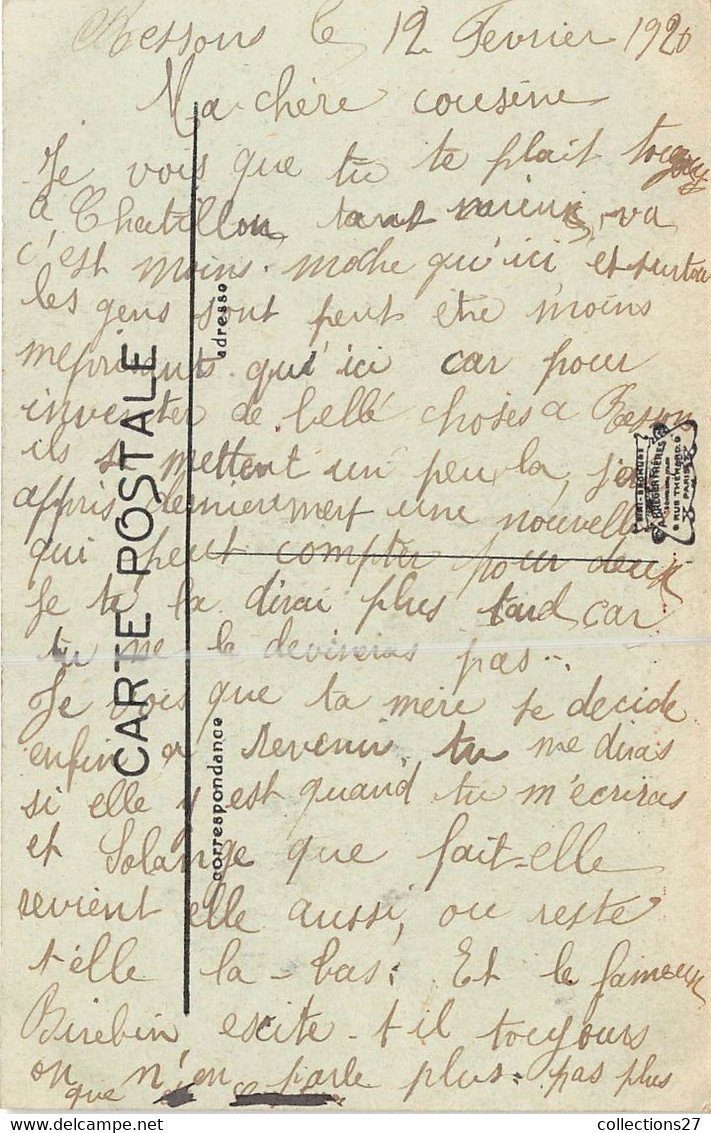 Ressons le 12 Fevrier 1920
Ma chère cousine
Je vois que tu te plait toujours
a Chatillon, tant mieux, va
c'est moins moche qu'ici et surtout
les gens sont peut etre moins
meprisants qu'ici car pour
inventer de bellé choses a Resson
ils se mettent un peu la, j'ai
appris dernierement une nouvelle
qui peut compter pour deux
Je te la dirai plus tard car
tu ne la devineras pas...
Je vois que ta mere se decide
enfin a revenir, tu me diras
si elle y est quand tu m'ecriras
et Solange que fait-elle
revient elle aussi, ou reste
t'elle la-bas. Et le fameux
Birebin existe-t il toujours
on n'en parle plus. pas plus
que
CARTE POSTALE
adresse
correspondance
A. BREGER FRÈRES
9 RUE THÉNARD 9
PARIS
collections27